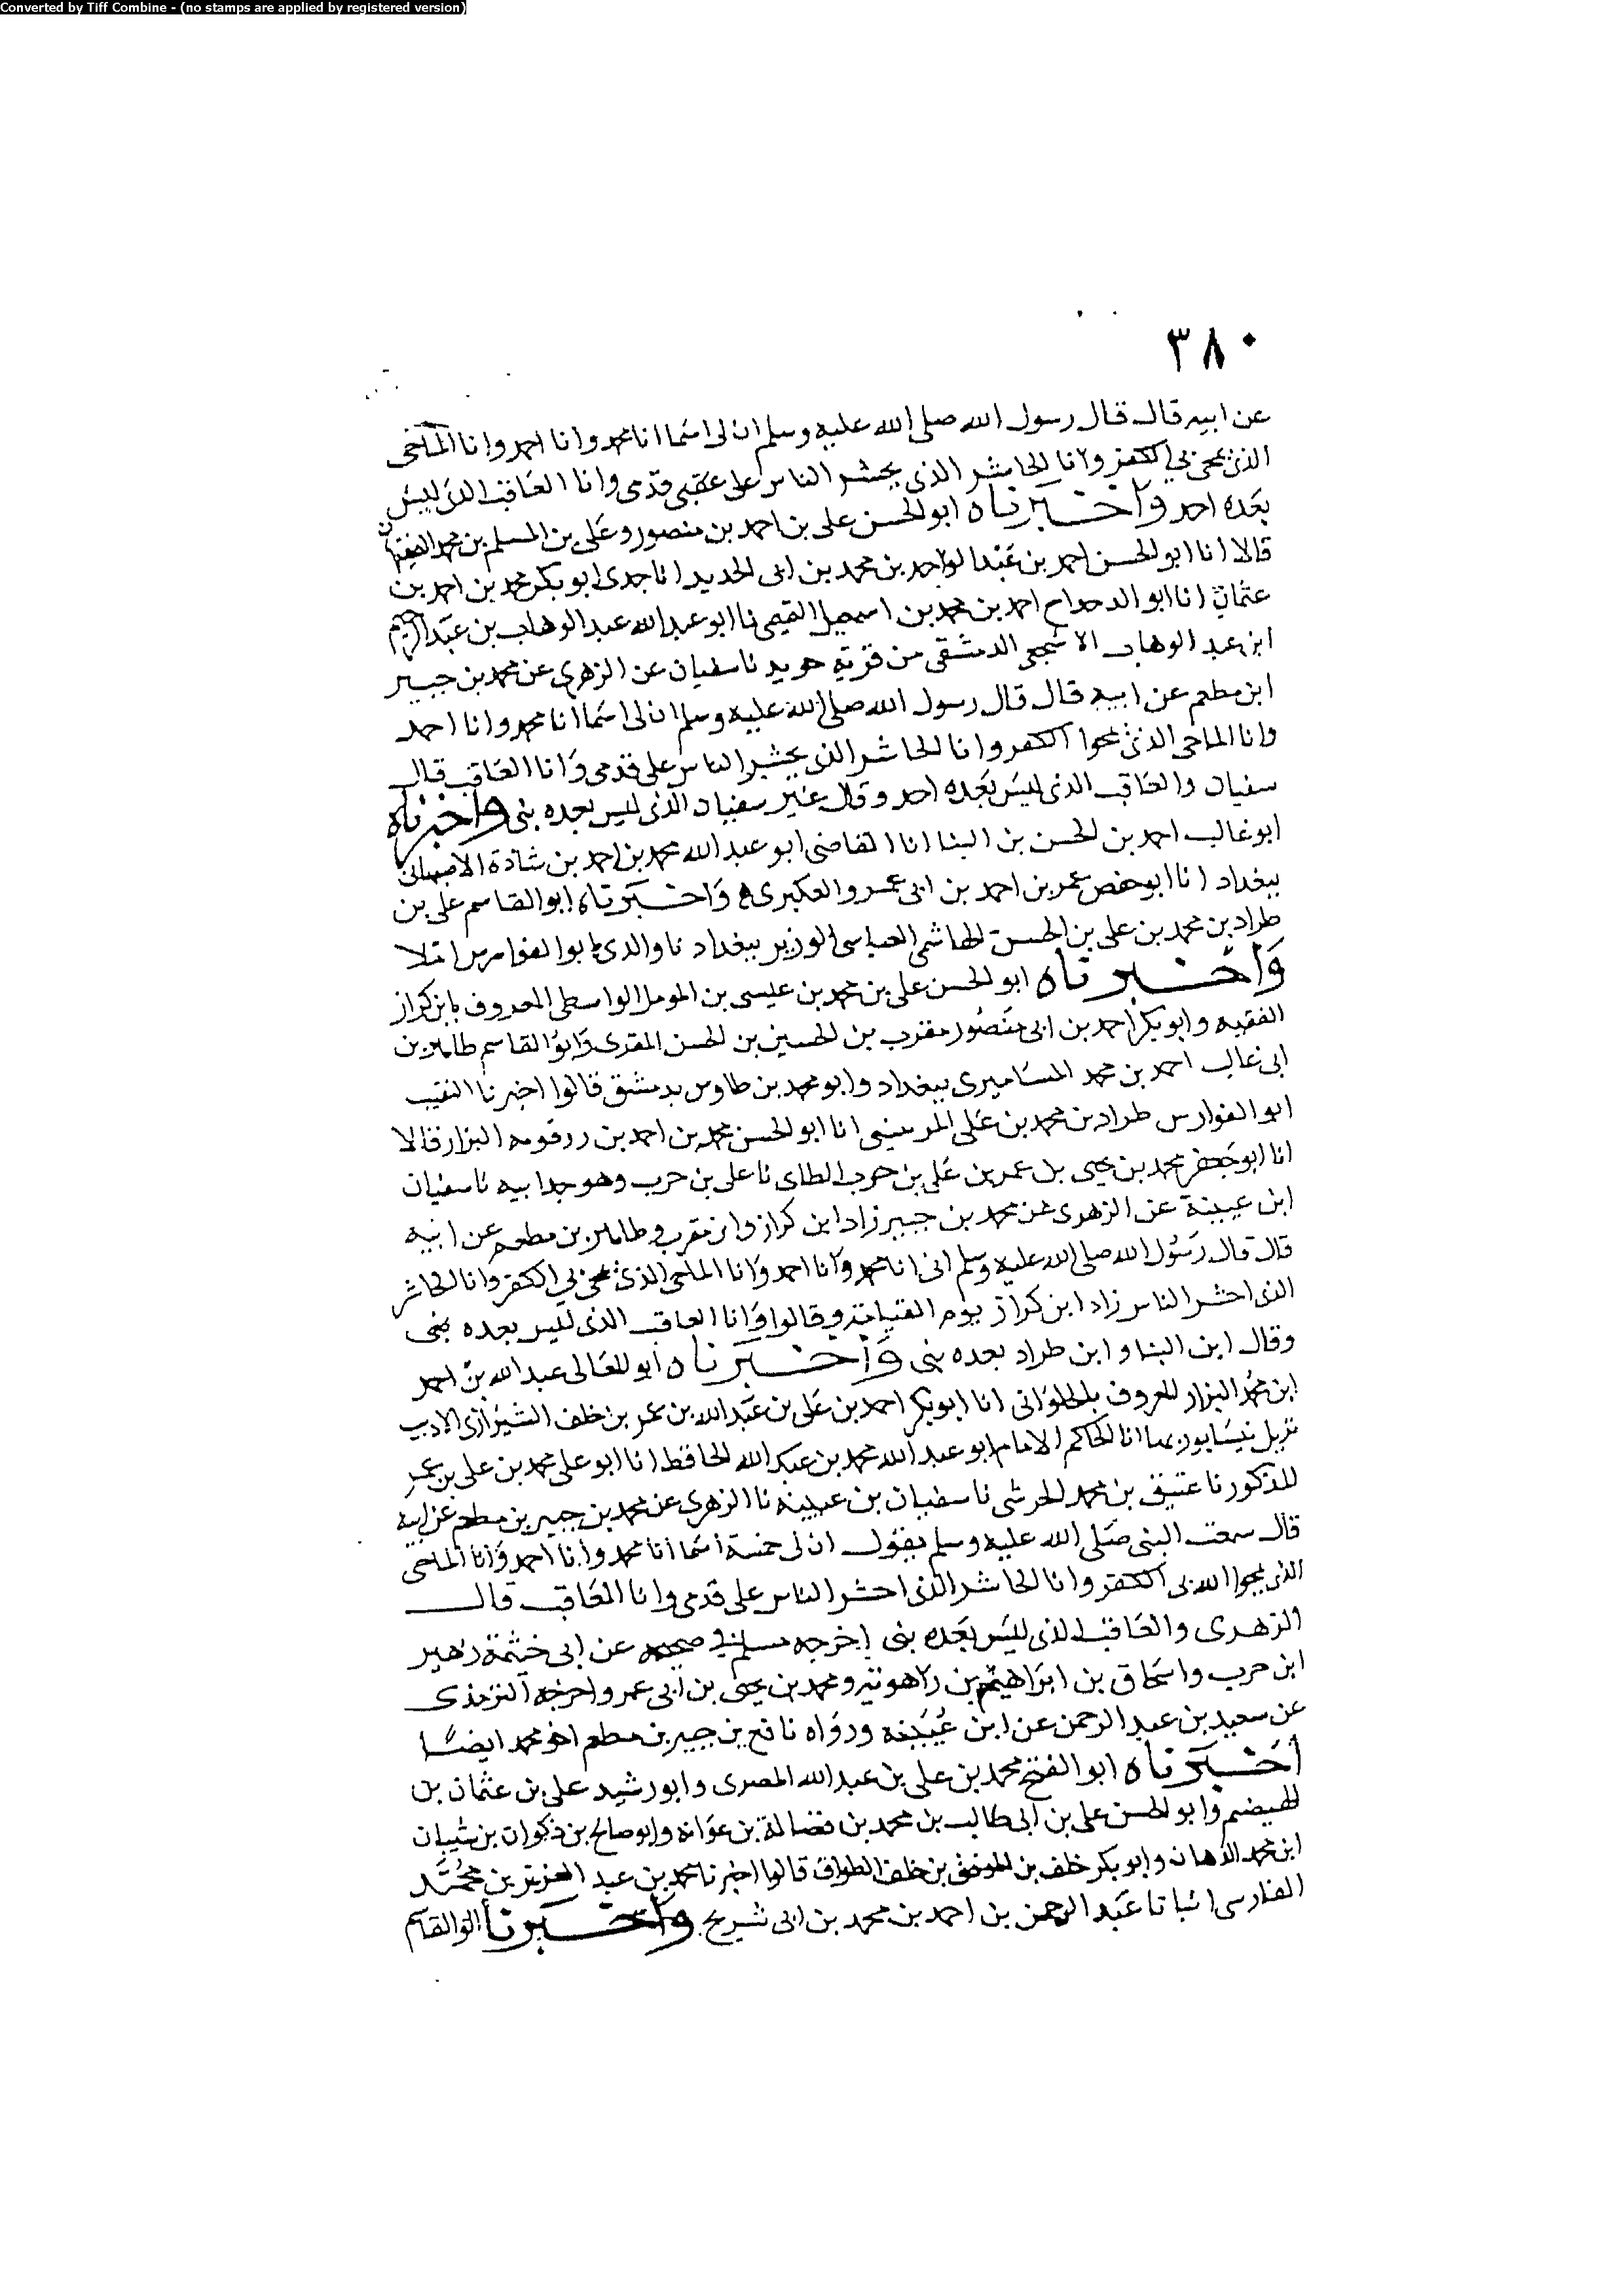 Converted by Tiff Combine - (no stamps are applied by registered version)
٣٨٠
عن ابيه قال قال رسول الله صلى الله عليه وسلم ان لى اسما انا محمد وانا احمد وانا الماحى
الذى يمحى بى الكفر وانا الحاشر الذى يحشر الناس على عقبى قدمى وانا العاقب الذى ليس
بعده احد واخبرناه ابو الحسن على بن احمد بن منصور وعلى بن المسلم بن محمد الفقيهان
قالا انا ابو الحسن احمد بن عبد الواحد بن محمد بن ابى الحديد انا جدى ابو بكر محمد بن احمد بن
عثمان انا ابو الدحداح احمد بن محمد بن اسمعيل التميمى نا ابو عبد الله عبد الوهاب بن عبد الرحيم
ابن عبد الوهاب الاشجعى الدمشقى من قرية حوير نا سفيان عن الزهرى عن محمد بن جبير
ابن مطعم عن ابيه قال قال رسول الله صلى الله عليه وسلم ان لى اسما انا محمد وانا احمد
وانا الماحى الذى يمحوا الكفر وانا الحاشر الذى يحشر الناس على قدمى وانا العاقب قال
سفيان والعاقب الذى ليس بعده احد وقال غير سفيان الذى ليس بعده نبى واخبرناه
ابو غالب احمد بن الحسن بن البنا انا القاضى ابو عبد الله محمد بن احمد بن شاذة الاصبهانى
ببغداد انا ابو حفص عمر بن احمد بن ابى عمرو العكبرى واخبرناه ابو القاسم على بن
طراد بن محمد بن على بن الحسن الهاشمى العباسى الوزير ببغداد نا والدى ابو الفوارس املا
واخبرناه ابو الحسن على بن محمد بن عيسى بن المومل الواسطى المعروف بابن كراز
الفقيه وابو بكر احمد بن ابى منصور مقرب بن الحسين بن الحسن المقرى وابو القاسم طاهر بن
ابى غالب احمد بن محمد المساميرى ببغداد وابو محمد بن طاوس بدمشق قالوا اخبرنا النقيب
ابو الفوارس طراد بن محمد بن على الزينبى انا ابو الحسن محمد بن احمد بن رزقويه البزاز قالا
انا ابو جعفر محمد بن يحيى بن عمر بن على بن حرب الطاى نا على بن حرب وهو جد ابيه نا سفيان
ابن عيينة عن الزهرى عن محمد بن جبير زاد ابن كراز وابن مقرب وطاهر بن مطعم عن ابيه
قال قال رسول الله صلى الله عليه وسلم انى انا محمد وانا احمد وانا الماحى الذى يمحى بى الكفر وانا الحاشر
الذى احشر الناس زاد ابن كراز يوم القيامة وقالوا وانا العاقب الذى ليس بعده نبى
وقال ابن البنا وابن طراد بعده نبى واخبرناه ابو المعالى عبد الله بن احمد
ابن محمد البزاز المعروف بالحلوانى انا ابو بكر احمد بن على بن عبد الله بن عمر بن خلف الشيرازى الاديب
نزيل نيسابور بها انا الحاكم الامام ابو عبد الله محمد بن عبد الله الحافظ انا ابو على محمد بن على بن عمر
المذكور نا عتيق بن محمد الحرشى نا سفيان بن عيينه نا الزهرى عن محمد بن جبير بن مطعم عن ابيه
قال سمعت النبى صلى الله عليه وسلم يقول ان لى خمسة اسما انا محمد وانا احمد وانا الماحى
الذى يمحوا الله بى الكفر وانا الحاشر الذى احشر الناس على قدمى وانا العاقب قال
الزهرى والعاقب الذى ليس بعده نبى اخرجه مسلم فى صحيحه عن ابى خثيمة زهير
ابن حرب واسحاق بن ابراهيم بن راهويه ومحمد بن يحيى بن ابى عمر واخرجه الترمذى
عن سعيد بن عبد الرحمن عن ابن عيينه ورواه نافع بن جبير بن مطعم اخو محمد ايضا
اخبرناه ابو الفتح محمد بن على بن عبد الله المصرى وابو رشيد على بن عثمان بن
الهيضم وابو الحسن على بن ابى طالب بن محمد بن فضالة بن عوانه وابو صالح بن ذكوان بن شيبان
ابن محمد الدهان وابو بكر خلف بن الموفق بن خلف الطواق قالوا اخبرنا محمد بن عبد العزيز بن محمد
الفارسى انبا نا عبد الرحمن بن احمد بن محمد بن ابى شريح واخبرنا ابو القاسم